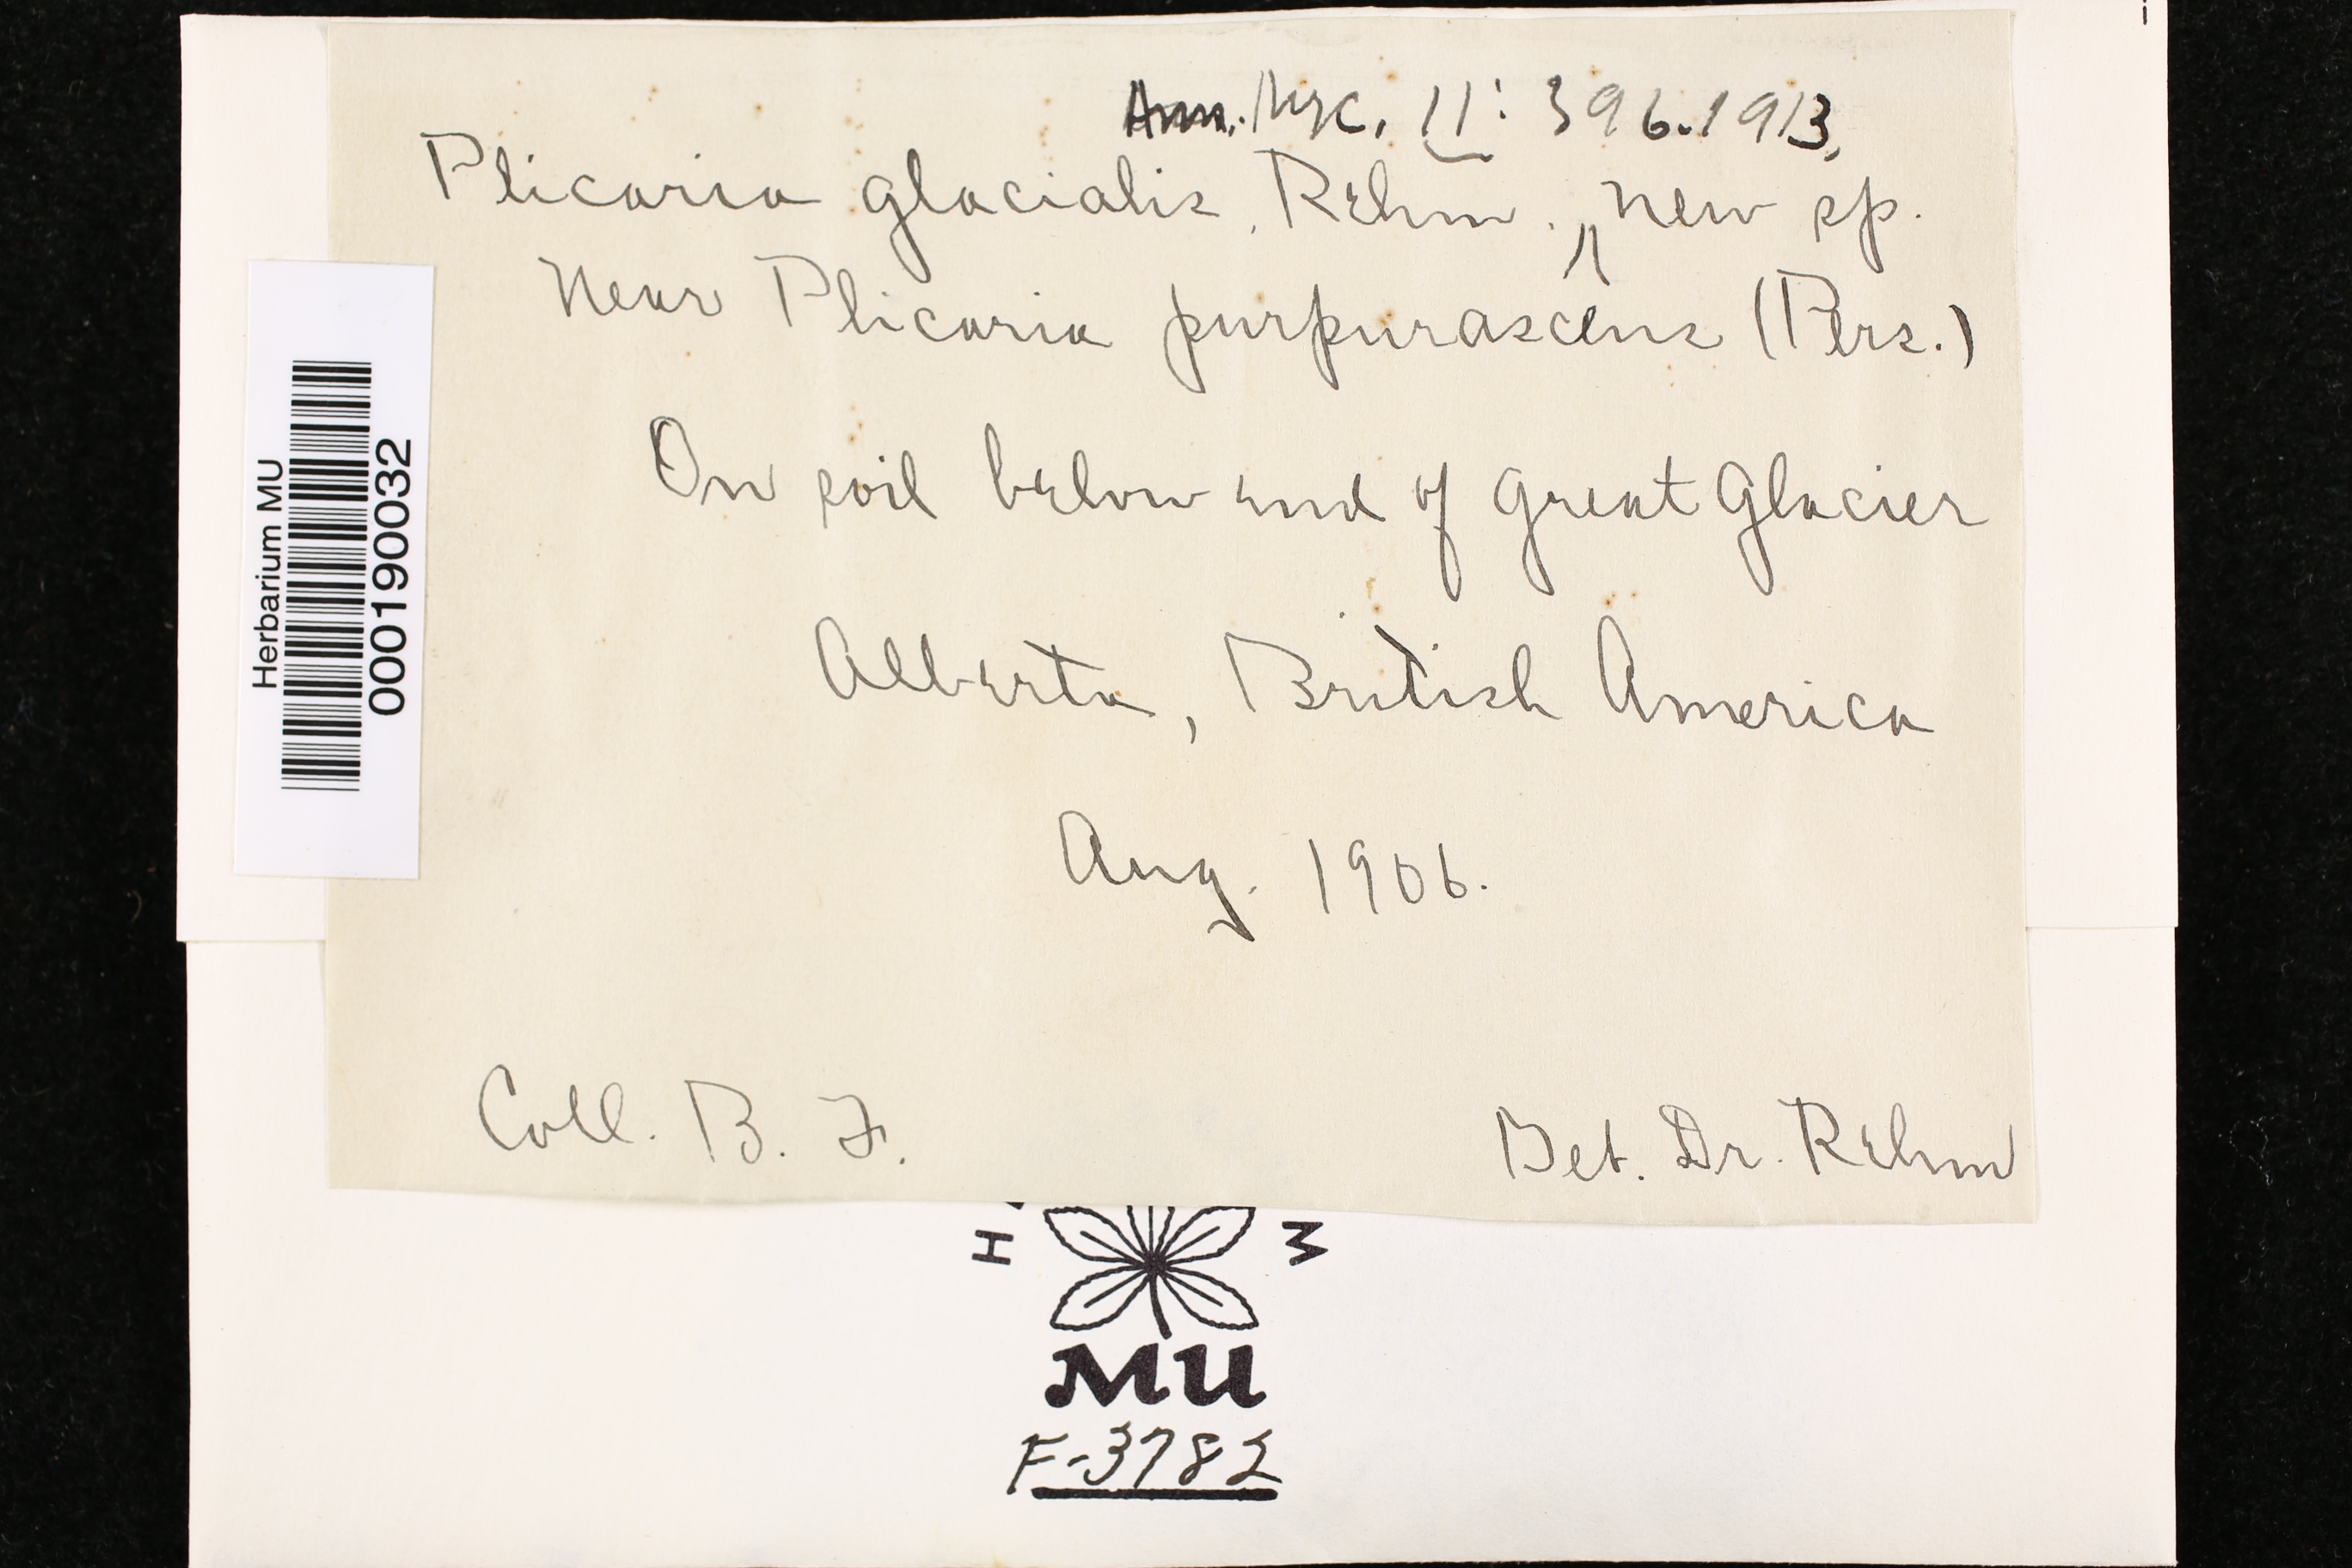 Ann. Myc. 11: 396. 1913.
Plicaria glacialis, Rehm. ∧ new sp.
Near Plicaria purpurascens (Pers.)
On soil below end of Great Glacier
Alberta, British America
Aug. 1906.
Coll. B. F.
Det. Dr. Rehm
Herbarium MU
000190032
H M
MU
F-3782